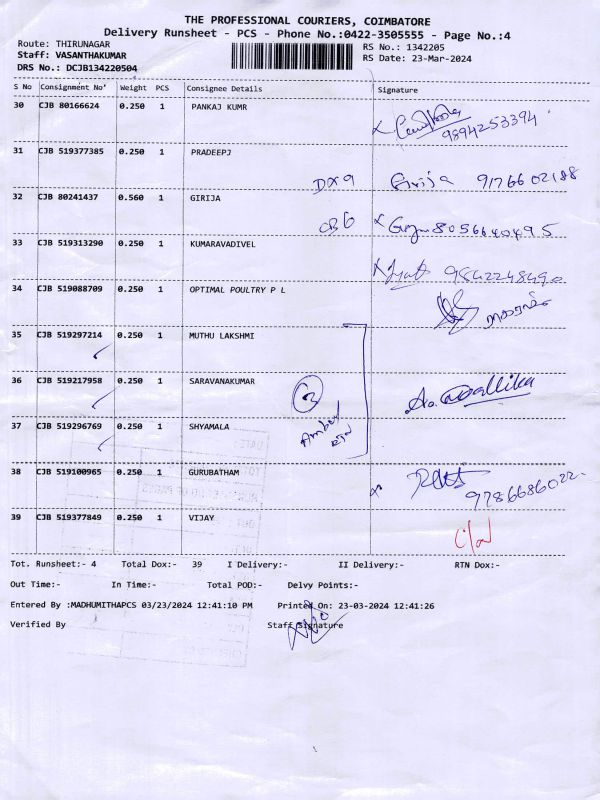 THE PROFESSIONAL COURIERS, COIMBATORE
Delivery Runsheet - PCS - Phone No.:0422-3505555 - Page No.:4
Route: THIRUNAGAR RS No.: 1342205
Staff: VASANTHAKUMAR RS Date: 23-Mar-2024
DRS No.: DCJB134220504
S No Consignment No' Weight PCS Consignee Details Signature
30 CJB 80166624 0.250 1 PANKAJ KUMR
9894253394
31 CJB 519377385 0.250 1 PRADEEPJ
DX9 Girija 9176602188
32 CJB 80241437 0.560 1 GIRIJA
CB6 8056640495
33 CJB 519313290 0.250 1 KUMARAVADIVEL
9842248490
34 CJB 519088709 0.250 1 OPTIMAL POULTRY P L
35 CJB 519297214 0.250 1 MUTHU LAKSHMI
36 CJB 519217958 0.250 1 SARAVANAKUMAR
3
37 CJB 519296769 0.250 1 SHYAMALA
38 CJB 519100965 0.250 1 GURUBATHAM
9786686022.
39 CJB 519377849 0.250 1 VIJAY
Tot. Runsheet:- 4 Total Dox:- 39 I Delivery:- II Delivery:- RTN Dox:-
Out Time:- In Time:- Total POD:- Delvy Points:-
Entered By :MADHUMITHAPCS 03/23/2024 12:41:10 PM Printed On: 23-03-2024 12:41:26
Verified By Staff Signature